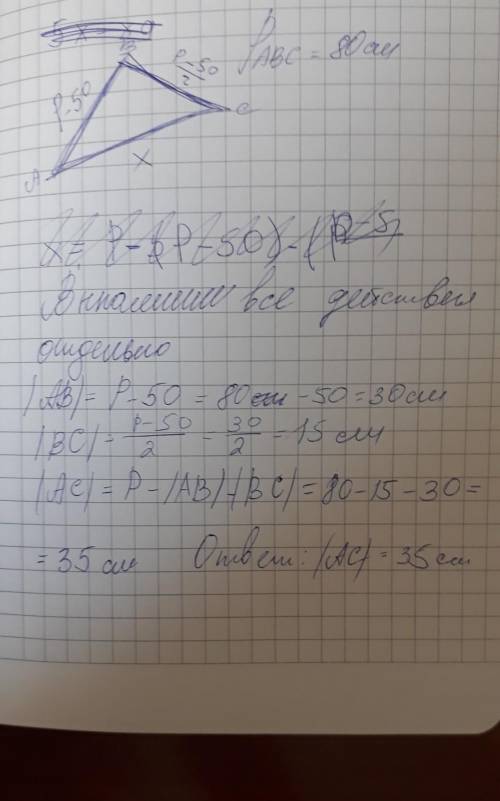 B
P-50
P-50
2
P ABC = 80см
A
C
x
x = P - (P - 50) - (P - 5
Выполним все действия
отдельно
|AB| = P - 50 = 80см - 50 = 30см
|BC| = P-50/2 = 30/2 = 15 см
|AC| = P - |AB| - |BC| = 80 - 15 - 30 =
= 35 см Ответ: |AC| = 35 см